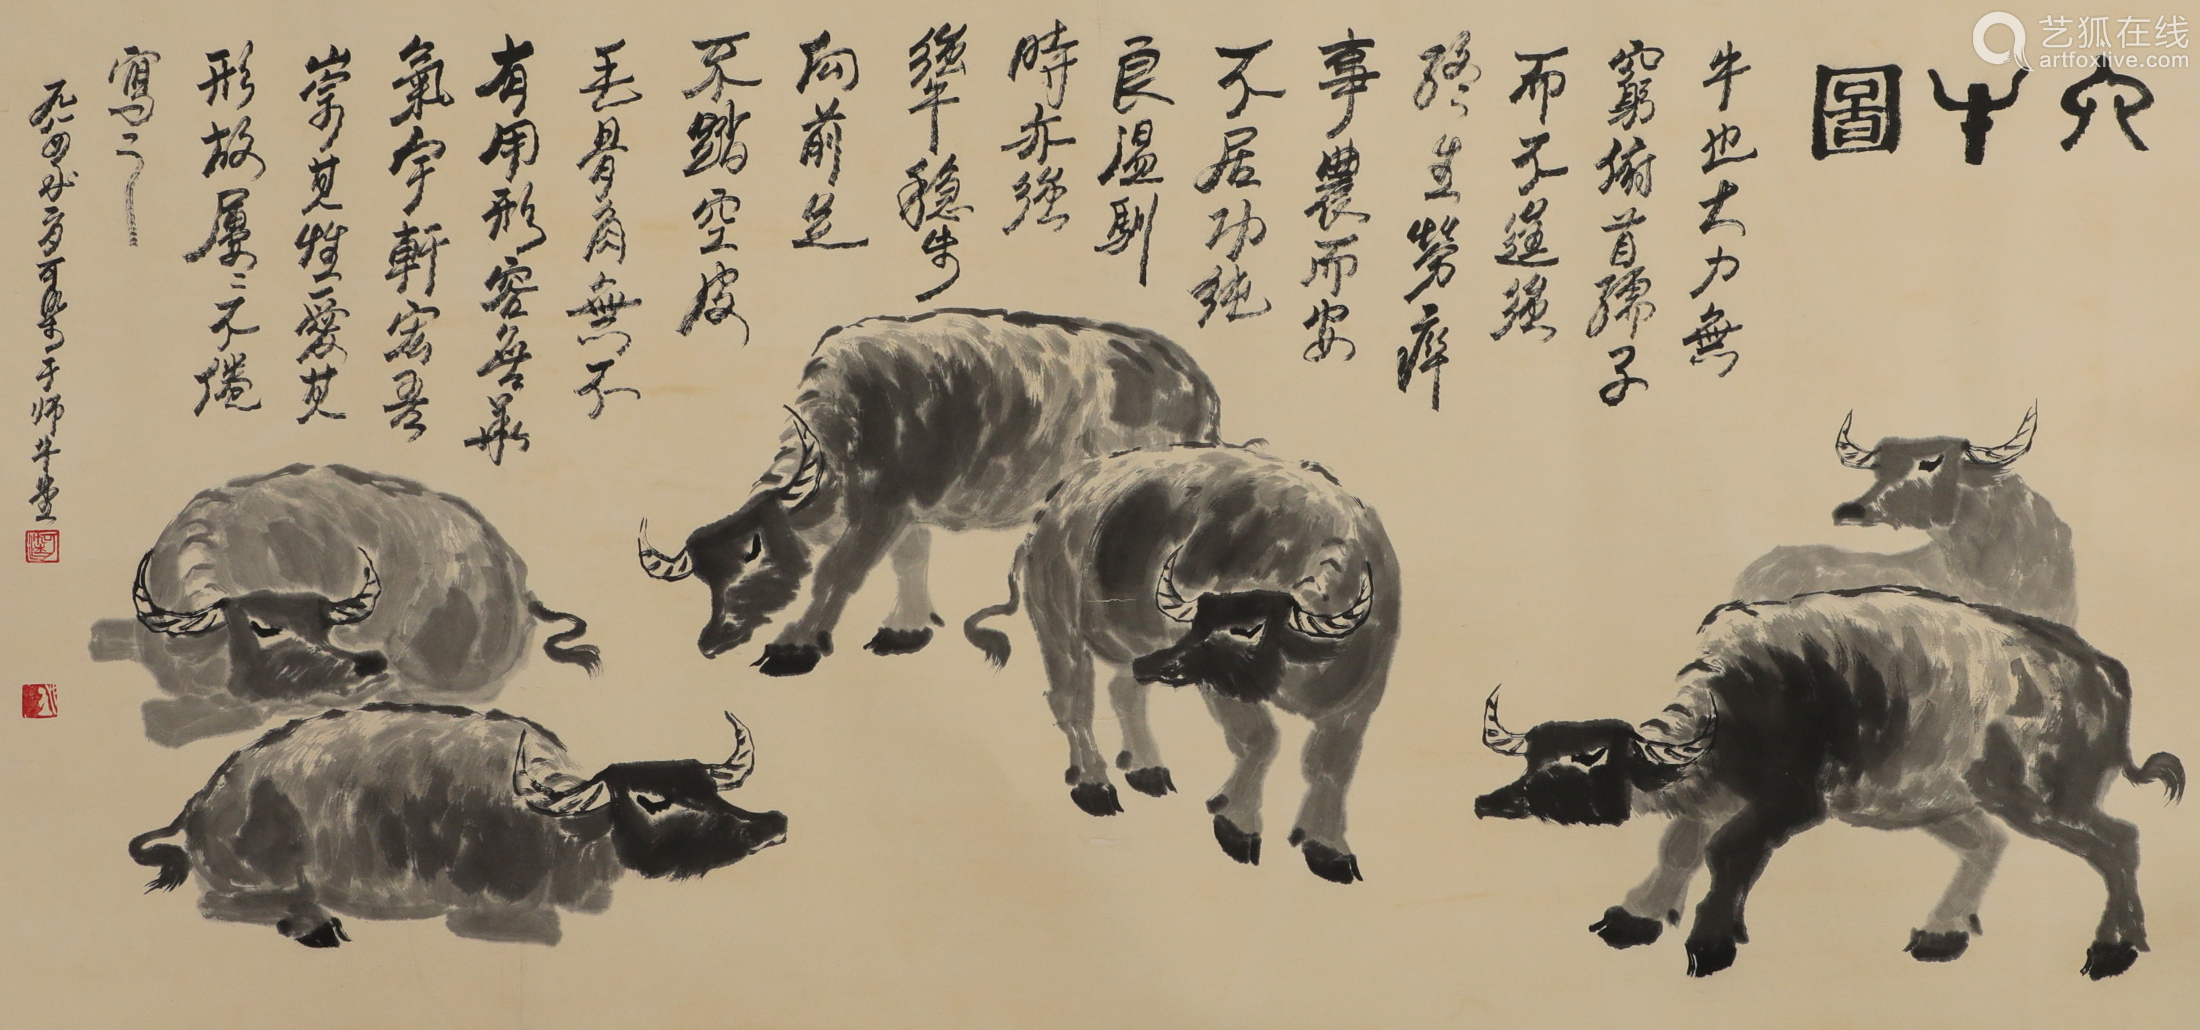 艺狐在线
artfoxlive.com
六牛圖
牛也大力無
窮俯首孺子
而不逞強
終生勞瘁
事農而安
不居功純
良溫馴
時亦強
犟穩步
向前足
不踏空皮
毛骨角無不
有用形容無華
氣宇軒宏吾
崇其性愛其
形故屢〻不倦
寫之
可染于師牛堂
可染